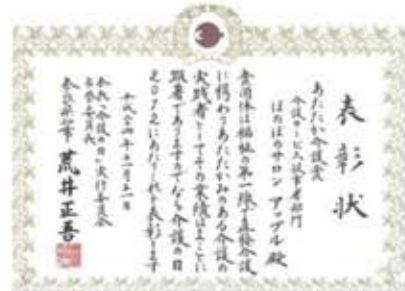 表彰状
あたたか介護賞
介護サービス従事者部門
ほのぼのサロン アップル殿
貴団体は福祉の第一線で直接介護
に携わりあたたかみのある介護の
実践者としてその業績はまことに
顕著でありますのでなら介護の日
2012にあたりこれを表彰します
平成二十四年十一月十一日
奈良「介護の日」実行委員会
名誉会長
奈良県知事 荒井正吾